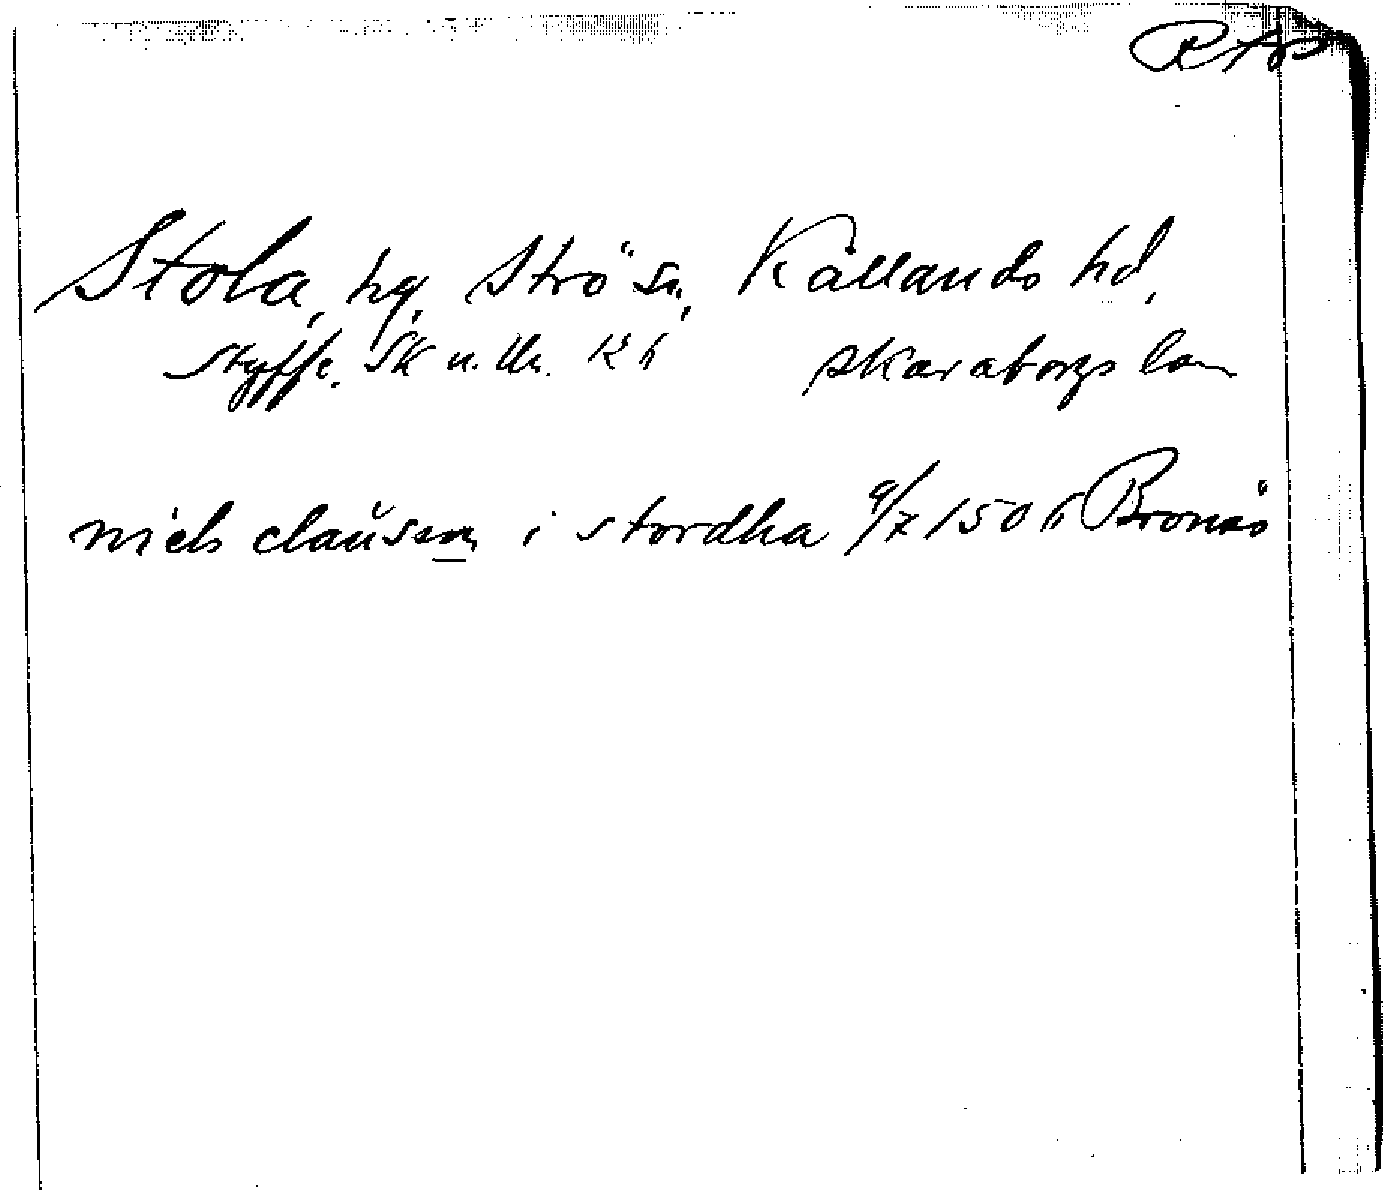 Stola, hg, Strö sn, Kållands hd,
Styffe, Sk u. Un. 126 skaraborgs län
niels claŭsen i stordha 9/7 1506 Bronäs